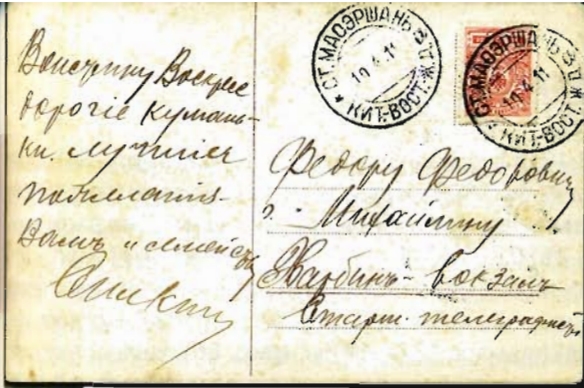 Воистину Воскресе
дорогіе кумань-
ки. лучшія
пожеланія
Вамъ и семейству
СТ. МАОЭРШАНЬ
10.4.11
КИТ-ВОСТ.
СТ. МАОЭРШАНЬ
10.4.11
КИТ-ВОСТ.
Федору Федоровичу
г. Михайлину
Харбинъ-вокзалъ
Старш. телеграфистъ